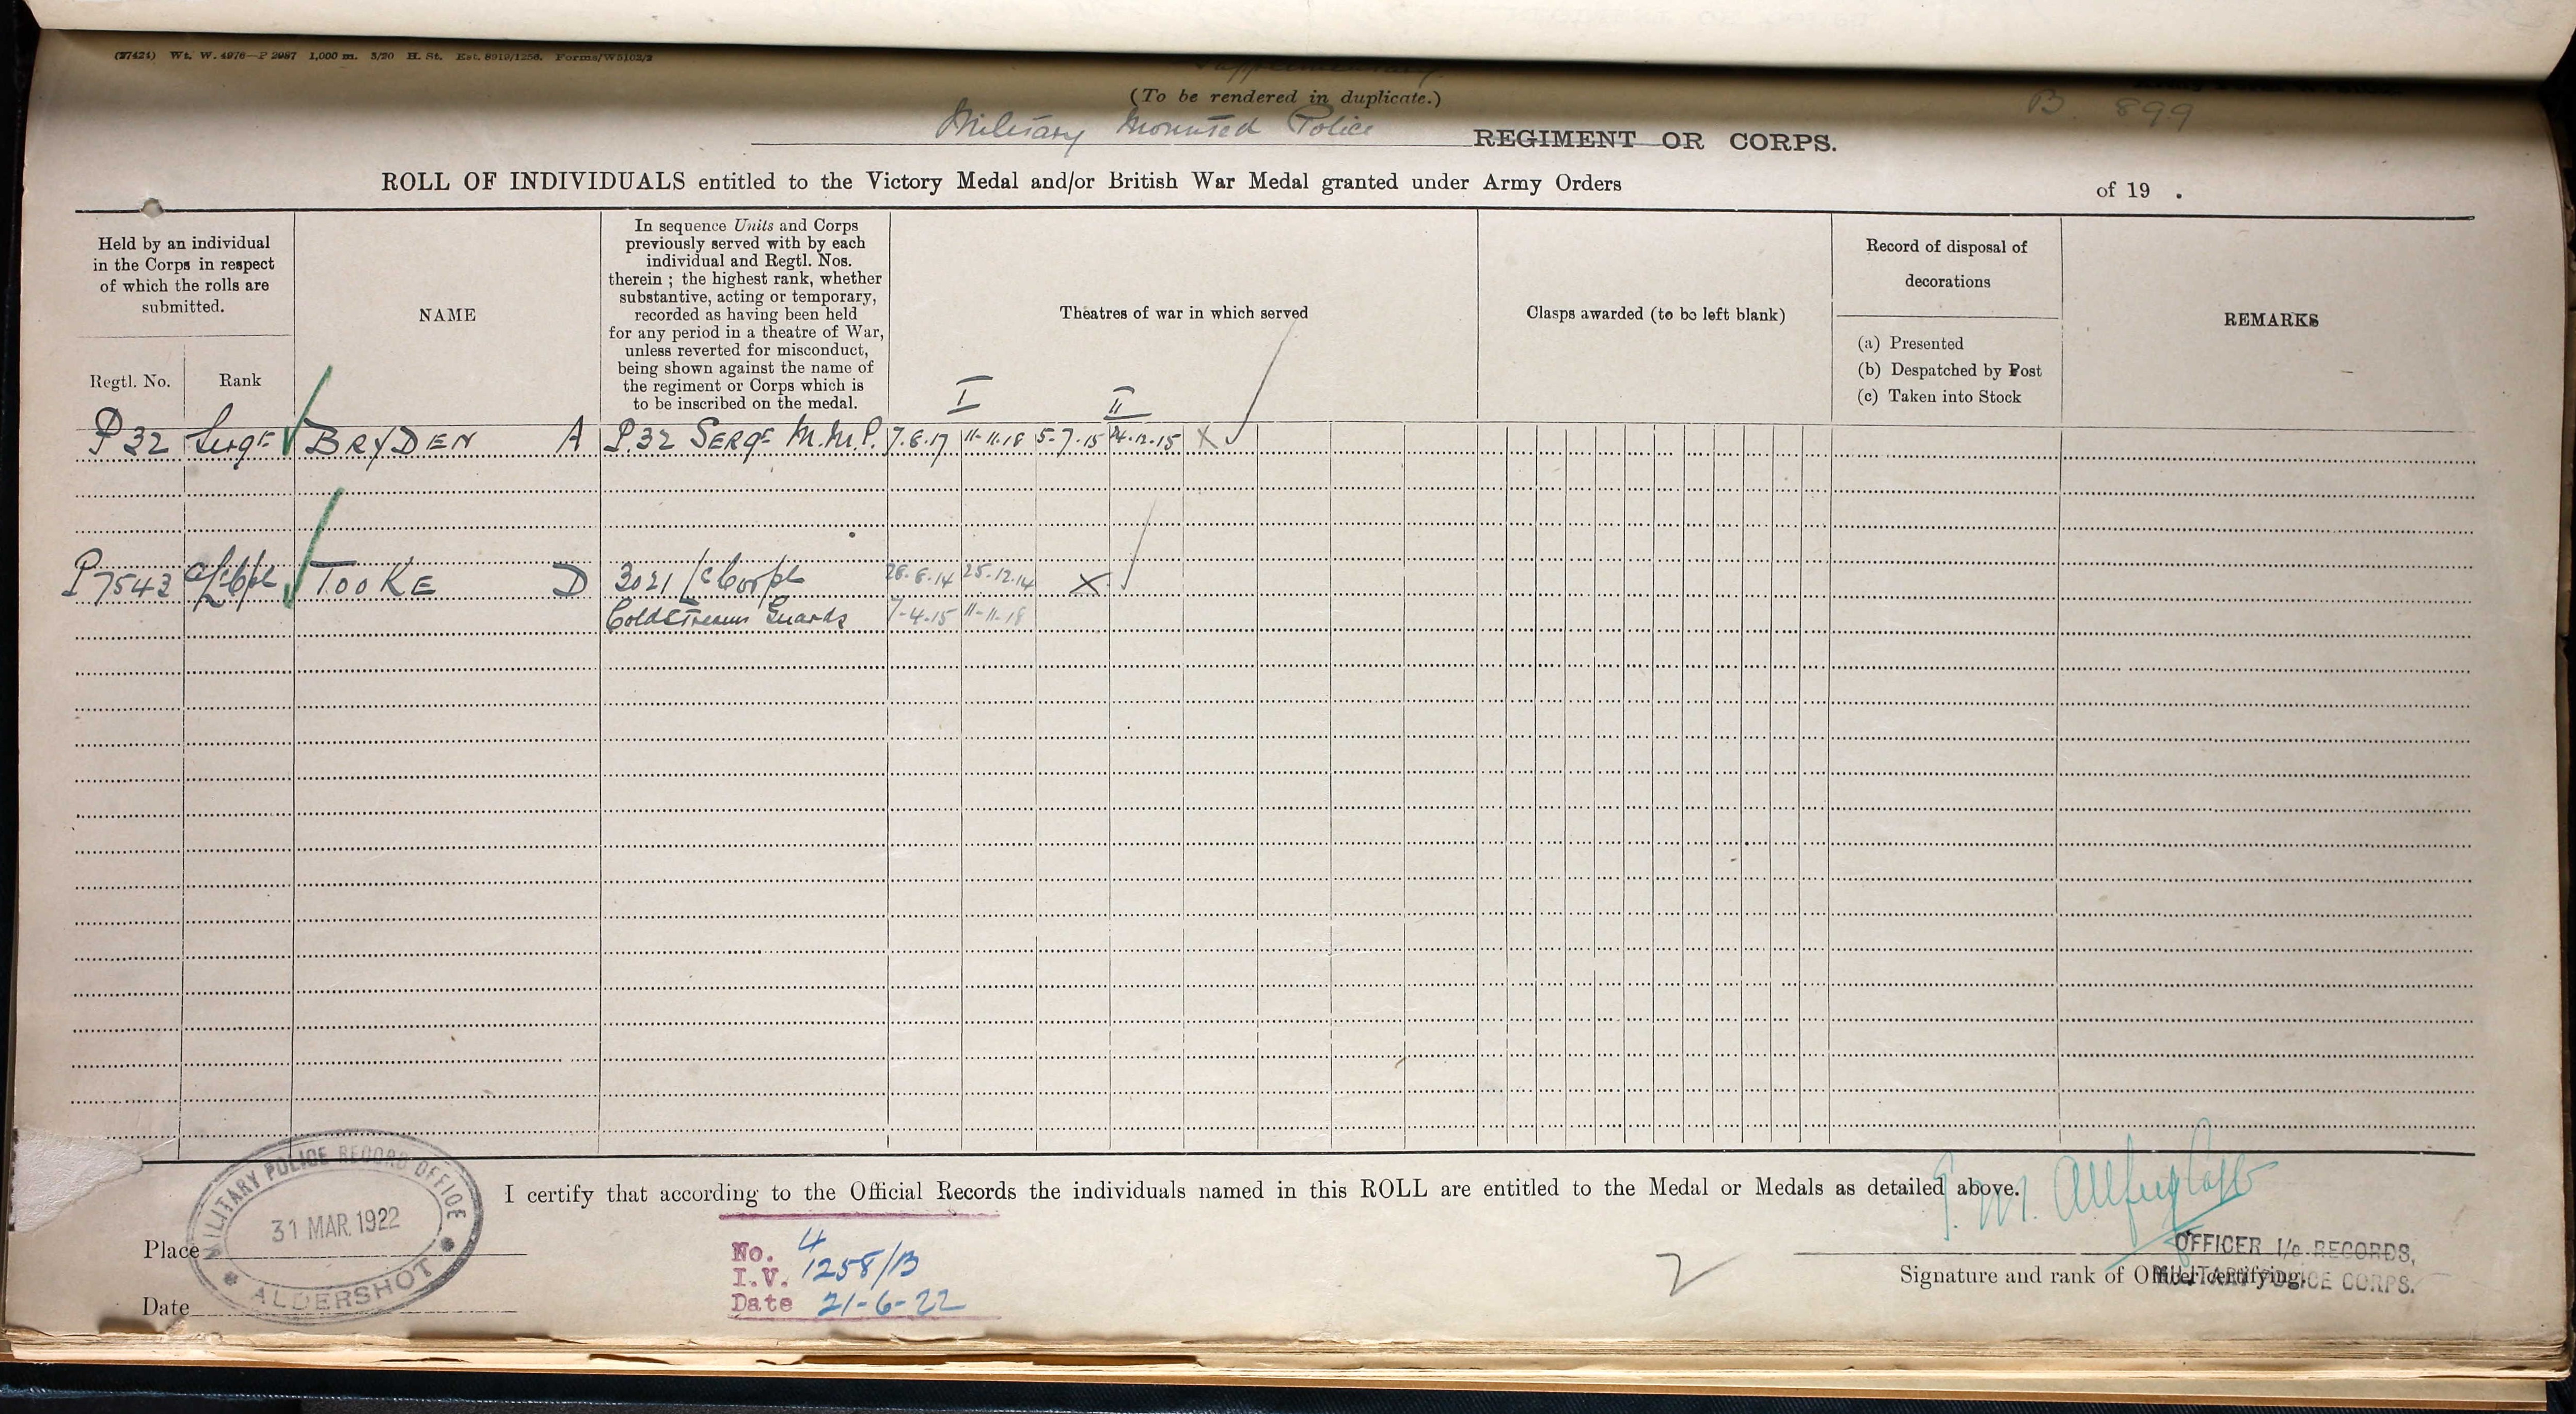 (27421) Wt. W. 4976—P 2987 1,000 m. 3/20 H. St. Est. 8919/1256. Forms/W5102/2
Supplementary
(To be rendered in duplicate.)
B. 899
Military Mounted Police REGIMENT OR CORPS.
ROLL OF INDIVIDUALS entitled to the Victory Medal and/or British War Medal granted under Army Orders of 19 .
Held by an individual
in the Corps in respect
of which the rolls are
submitted.
Regtl. No.
Rank
NAME
In sequence Units and Corps
previously served with by each
individual and Regtl. Nos.
therein ; the highest rank, whether
substantive, acting or temporary,
recorded as having been held
for any period in a theatre of War,
unless reverted for misconduct,
being shown against the name of
the regiment or Corps which is
to be inscribed on the medal.
Theatres of war in which served
I II
Clasps awarded (to be left blank)
Record of disposal of
decorations
(a) Presented
(b) Despatched by Post
(c) Taken into Stock
REMARKS
P 32 Sergt BRYDEN A P.32 SERGt M.M.P. 7.6.17 11.11.18 5-7-15 24.12.15 X
P7543 A/L/Cpl TOOKE D 3021 L/Corpl 26.8.14 25.12.14 X
Coldstream Guards 7-4.15 11-11-18
I certify that according to the Official Records the individuals named in this ROLL are entitled to the Medal or Medals as detailed above.
MILITARY POLICE RECORD OFFICE
31 MAR. 1922
ALDERSHOT
Place
Date
No. 4
I.V. 1258/B
Date 21-6-22
2
OFFICER I/c RECORDS,
MILITARY POLICE CORPS.
Signature and rank of Officer certifying.